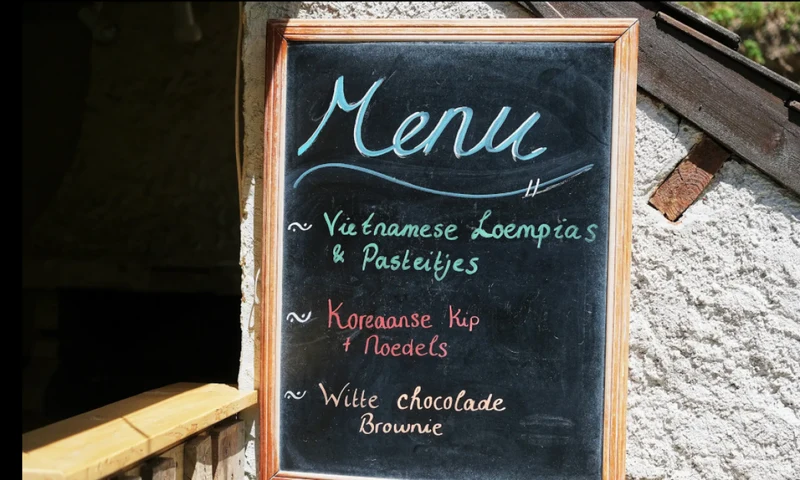 Menu
~ Vietnamese Loempias
& Pasteitjes
~ Koreaanse Kip
+ Noedels
~ Witte chocolade
Brownie